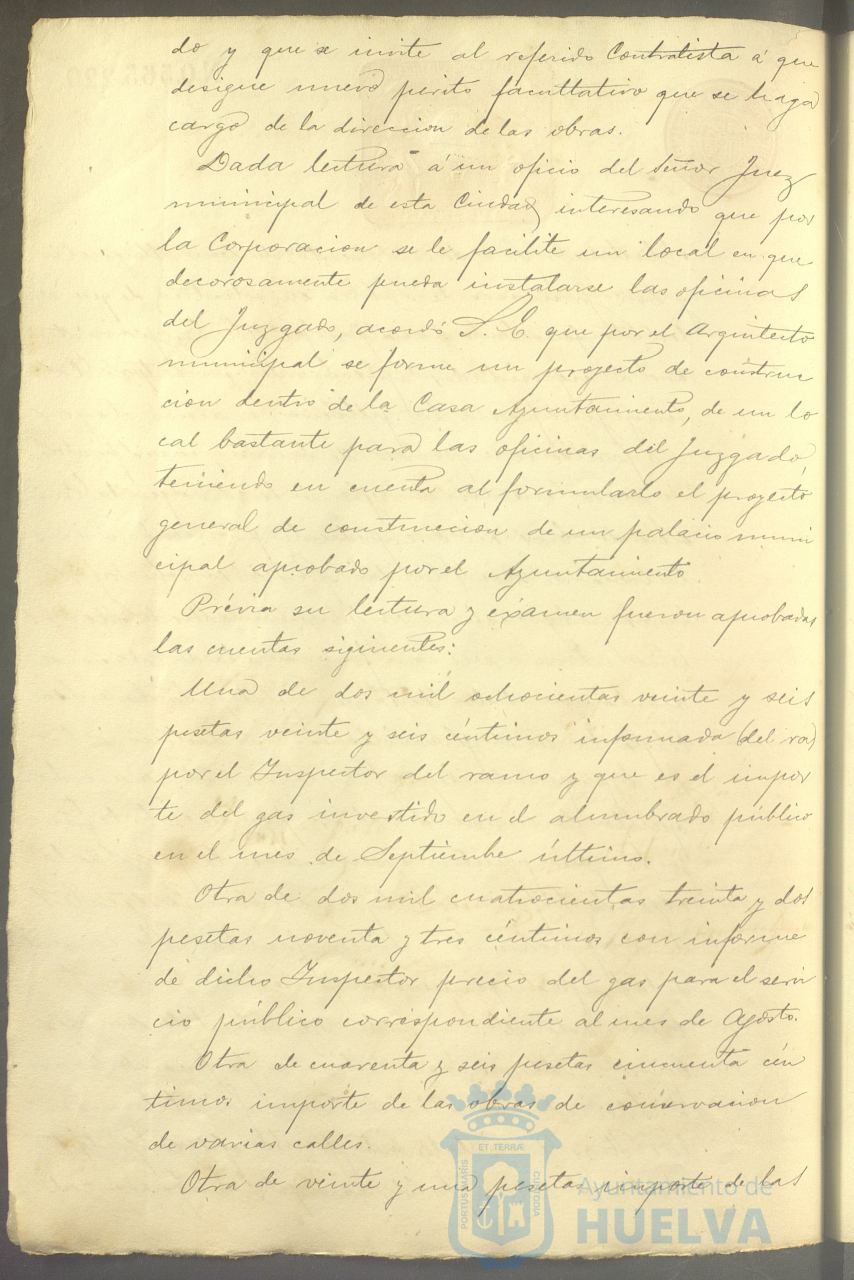 do y que se invite al referido Contratista á que
desigue nuevo perito facultativo que se haga
cargo de la direccion de las obras.
Dada lectura á un oficio del Señor Juez
municipal de esta Ciudad, interesando que por
la Corporacion se le facilite un local en que
decorosamente pueda instalarse las oficinas
del Juzgado, acordó S. E. que por el Arquitecto
municipal se forme un proyecto de construc
cion dentro de la Casa Ayuntamiento, de un lo
cal bastante para las oficinas del Juzgado,
teniendo en cuenta al formularlo el proyecto
general de construccion de un palacio muni
cipal aprobado por el Ayuntamiento
Prévia su lectura y exámen fueron aprobadas
las cuentas siguientes:
Una de dos mil ochocientas veinte y seis
pesetas veinte y seis céntimos informada (del ra)
por el Inspector del ramo y que es el impor
te del gas invertido en el alumbrado público
en el mes de Septiembre último.
Otra de dos mil cuatrocientas treinta y dos
pesetas noventa y tres céntimos con informe
de dicho Inspector precio del gas para el servi
cio público correspondiente al mes de Agosto.
Otra de cuarenta y seis pesetas cincuenta cén
timos importe de las obras de conservacion
de varias calles.
Otra de veinte y una pesetas importe de las
PORTUS MARIS ET TERRÆ CUSTODIA
Ayuntamiento de
HUELVA